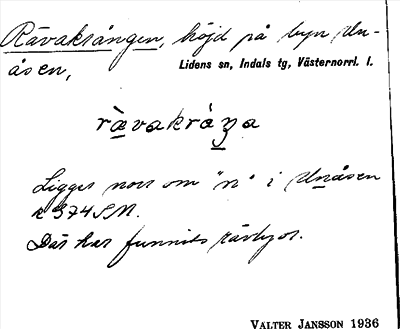 Rävakrången, höjd på byn Un-
åsen,
Lidens sn, Indals tg, Västernorrl. l.
rävakráŋa
Ligger norr om "n" i Unåsen
374 SM.
Där har funnits rävlyor.
VALTER JANSSON 1936